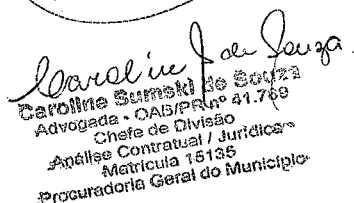 Caroline S. de Souza.
Caroline Sumski de Souza
Advogada - OAB/PR nº 41.769
Chefe de Divisão
Análise Contratual / Jurídica
Matrícula 15135
Procuradoria Geral do Município